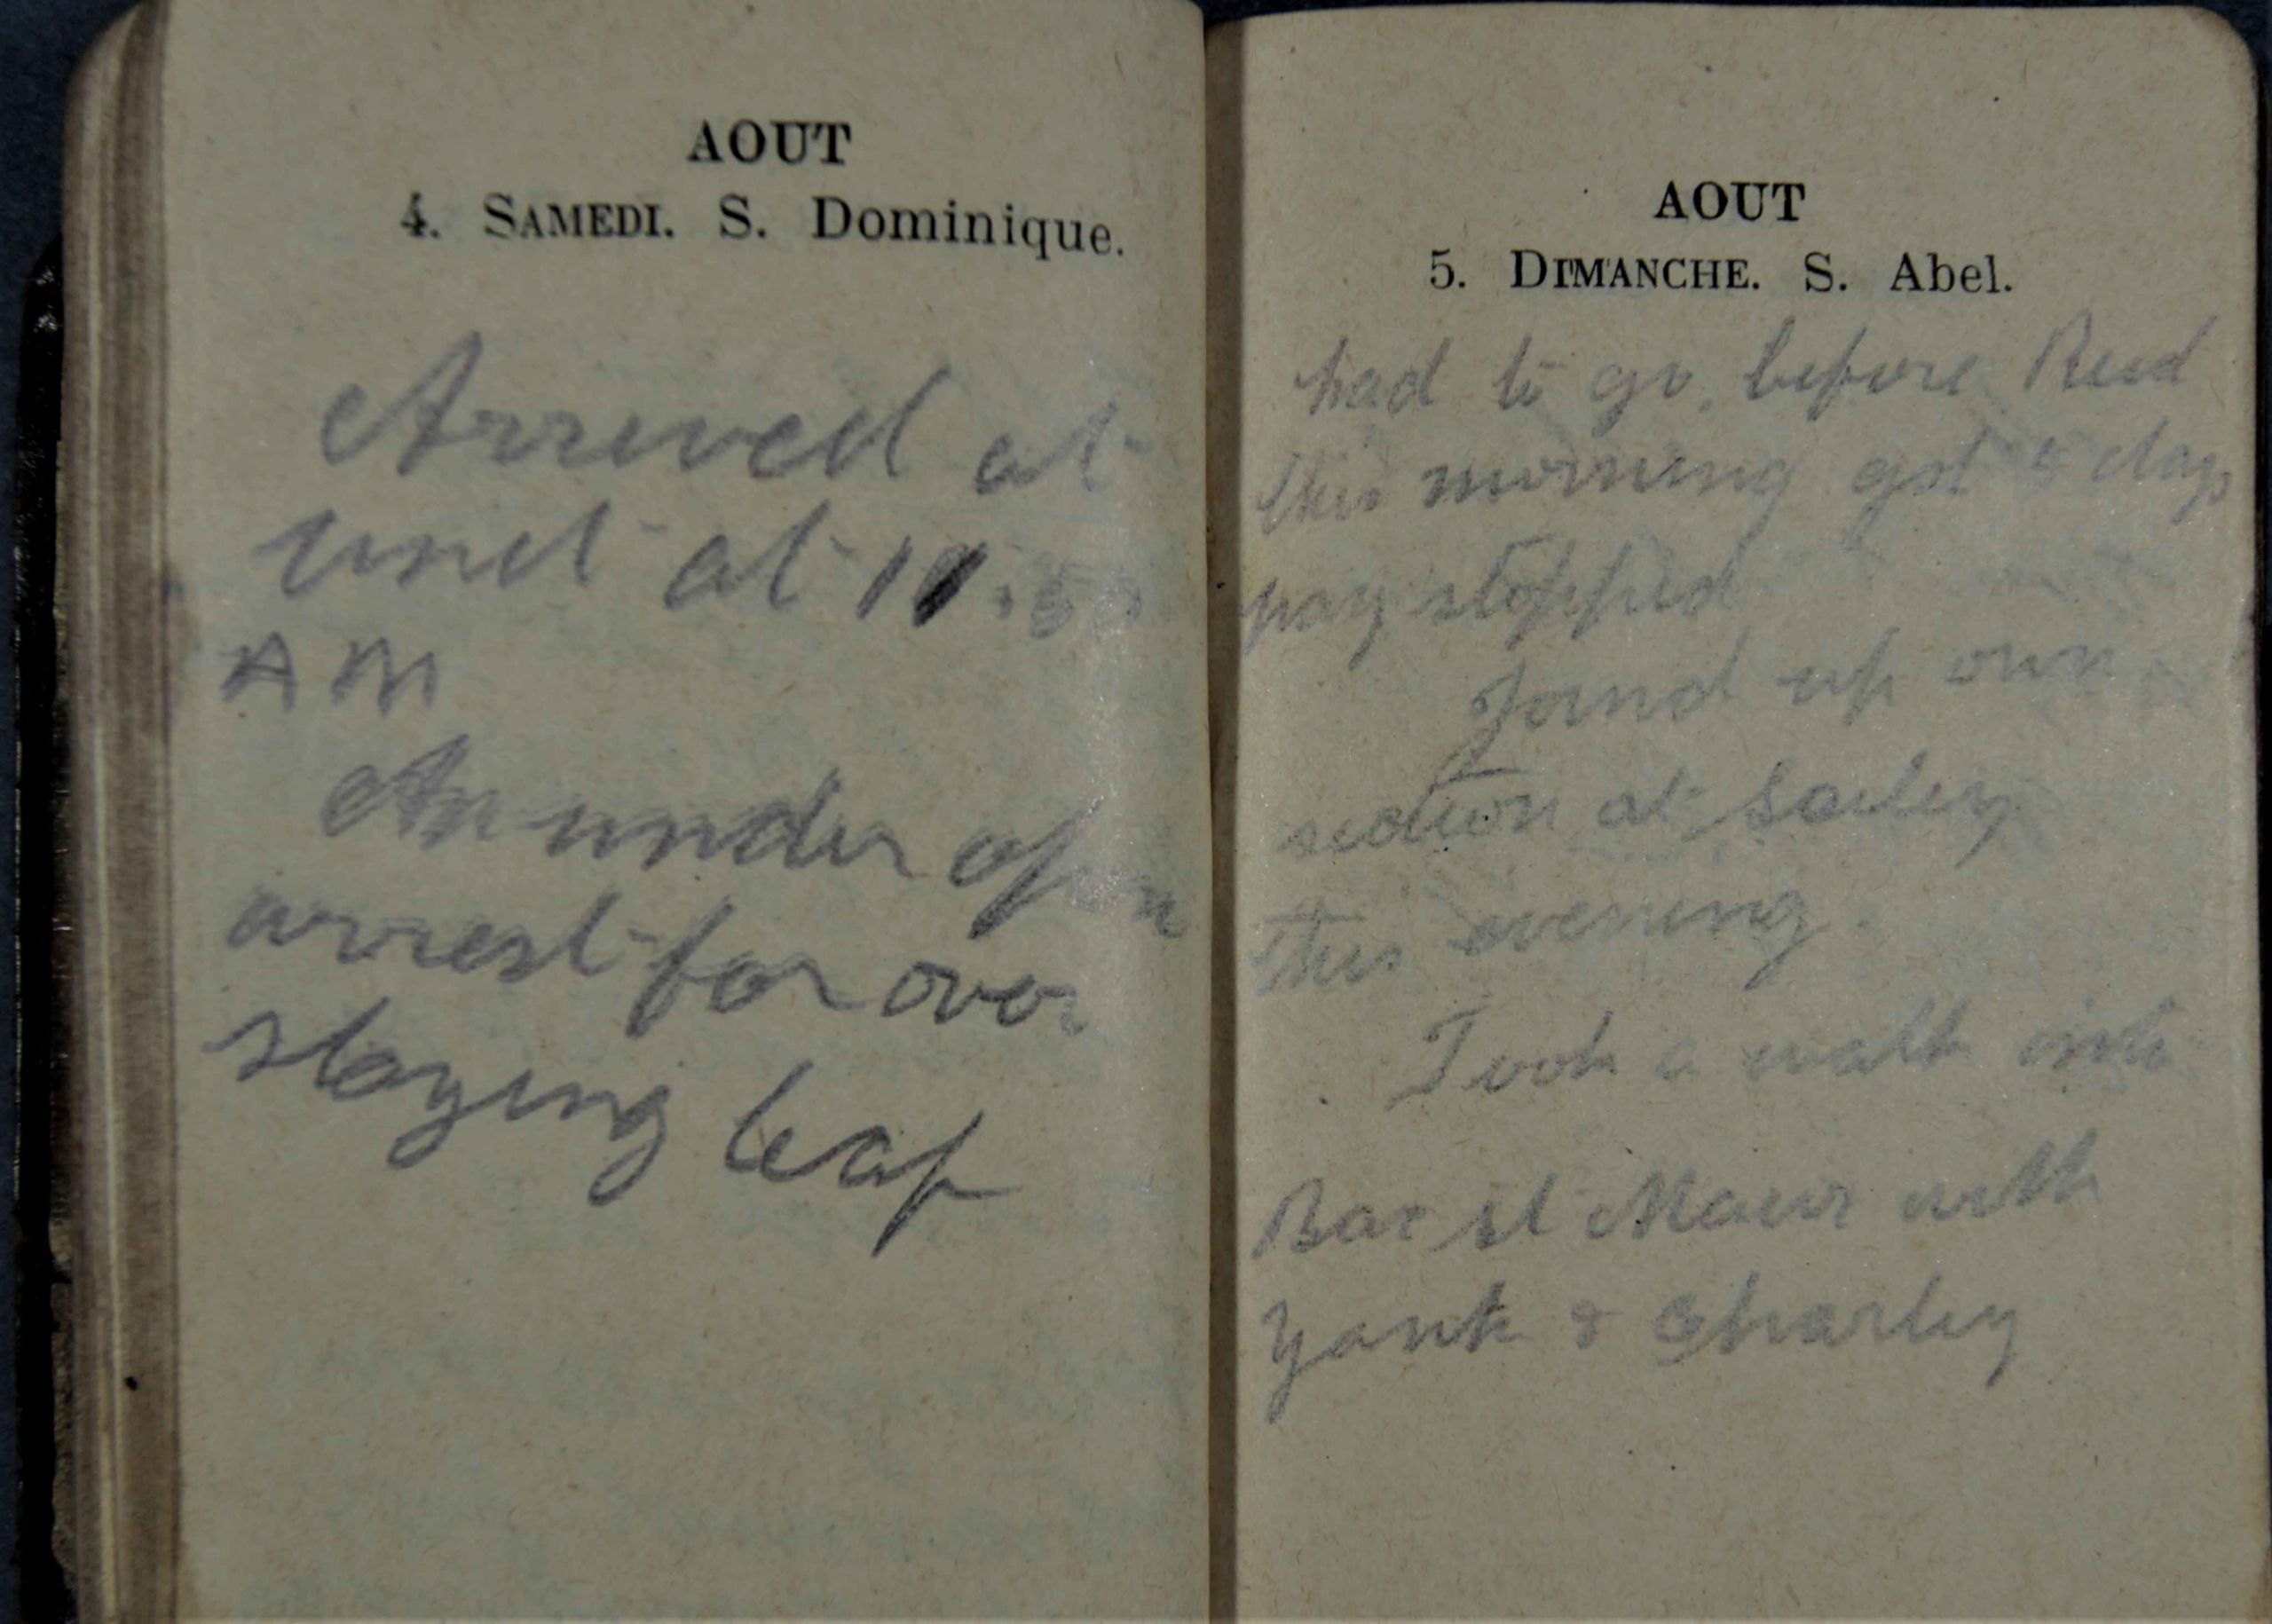 AOUT
4. SAMEDI. S. Dominique.
Arrived at
unit at
AM
Am under open
arrest for over
staying leaf
AOUT
5. DIMANCHE. S. Abel.
had to go before
this morning got 5 days
pay stopped
Joind up own
section at Sailey
this evening.
Took a walk into
Bac St Maur with
Yank & Charley